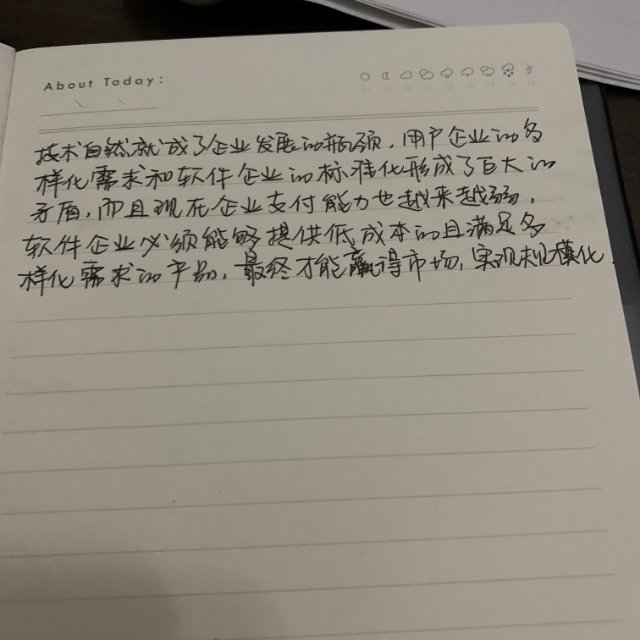 About Today:
技术自然就成了企业发展的瓶颈，用户企业的多
样化需求和软件企业的标准化形成了巨大的
矛盾，而且现在企业支付能力也越来越弱，
软件企业必须能够提供低成本的且满足多
样化需求的产品，最终才能赢得市场，实现规模化．